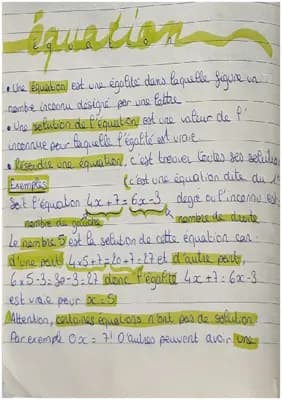 équation
• Une équation est une égalité dans laquelle figure un
nombre inconnu désigné par une lettre
• Une solution de l'équation est une valeur de l'
inconnue pour laquelle l'égalité est vraie
• Résoudre une équation, c'est trouver toutes ses solutio
Exemples (c'est une équation dite du 1
Soit l'équation 4x+7=6x-3 degré ou l'inconnu est
nombre de gauche nombre de droite
Le nombre 5 est la solution de cette équation car:
d'une part 4x5+7=20+7=27 et d'autre part,
6x5-3=30-3=27 donc l'égalité 4x+7=6x-3
est vraie pour x=5!
Attention, certaines équations n'ont pas de solution
Par exemple 0x=7! D'autres peuvent avoir une